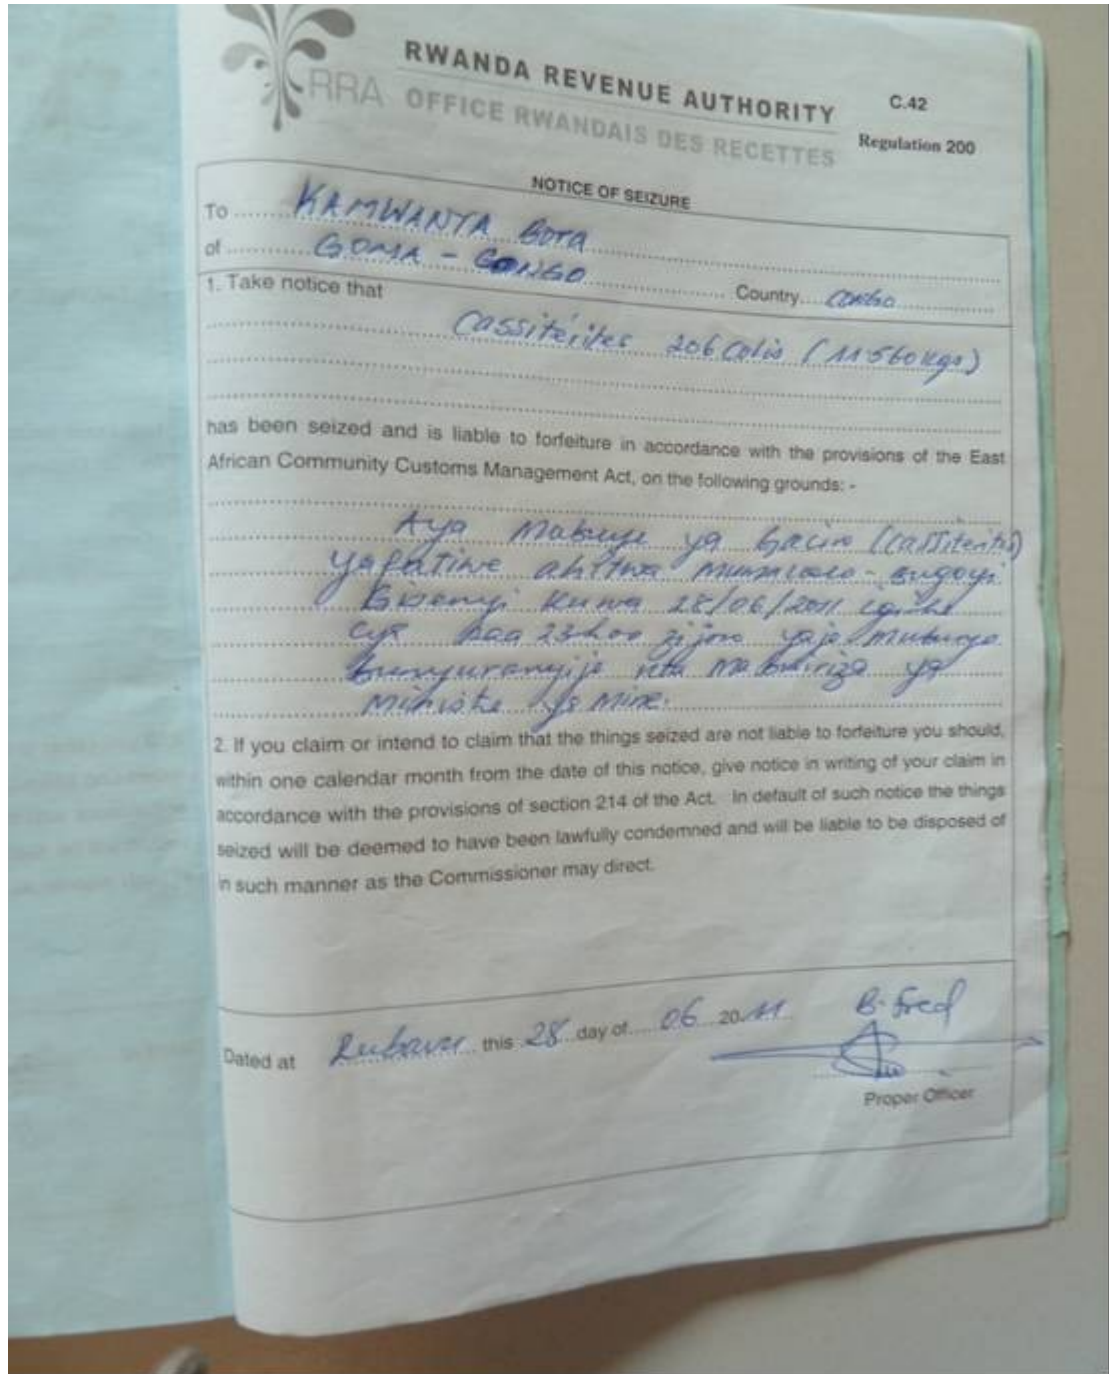 RRA
RWANDA REVENUE AUTHORITY
OFFICE RWANDAIS DES RECETTES
C.42
Regulation 200
NOTICE OF SEIZURE
To KAMWANYA Bora
of GOMA - CONGO Country Congo
1. Take notice that
Cassitérites 206 Colis (11560kgs)
has been seized and is liable to forfeiture in accordance with the provisions of the East
African Community Customs Management Act, on the following grounds: -
Aya mabuye ya (cassiterites)
yafatiwe ahitwa
kuwa 28/06/2011 igihe
cya saa 23h00 z'ijoro yaje muburyo
bunyuranyije na mabwiriza ya
2. If you claim or intend to claim that the things seized are not liable to forfeiture you should,
within one calendar month from the date of this notice, give notice in writing of your claim in
accordance with the provisions of section 214 of the Act. In default of such notice the things
seized will be deemed to have been lawfully condemned and will be liable to be disposed of
in such manner as the Commissioner may direct.
Dated at Rubavu this 28 day of 06 2011 B. Fred
Proper Officer